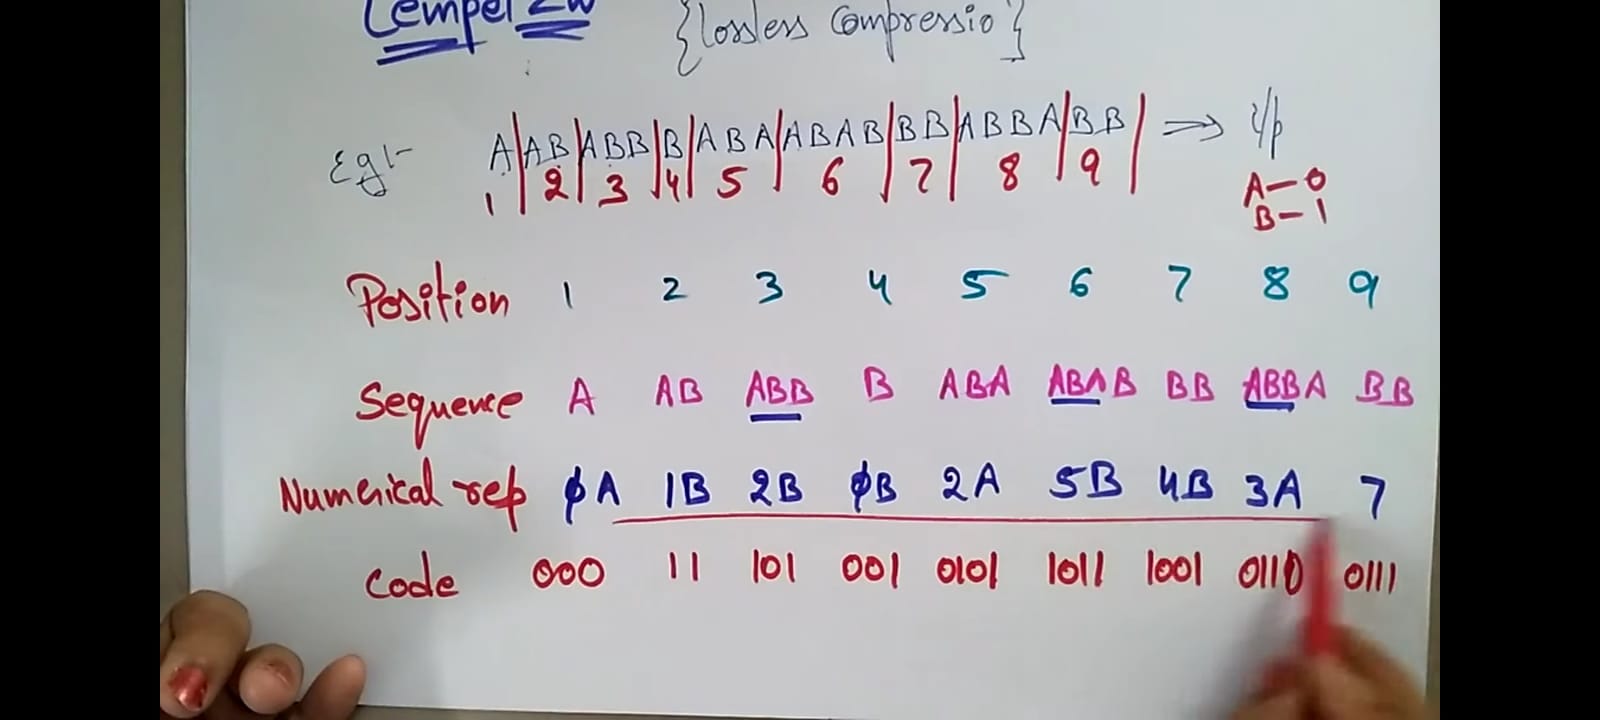 Lempel Ziv {lossless Compressio}
Eg1:- A|AB|ABB|B|ABA|ABAB|BB|ABBA|BB| → i/p
1 2 3 4 5 6 7 8 9
A-0
B-1
Position 1 2 3 4 5 6 7 8 9
Sequence A AB ABB B ABA ABAB BB ABBA BB
Numerical rep ϕA 1B 2B ϕB 2A 5B 4B 3A 7
Code 000 11 101 001 0101 1011 1001 0110 0111